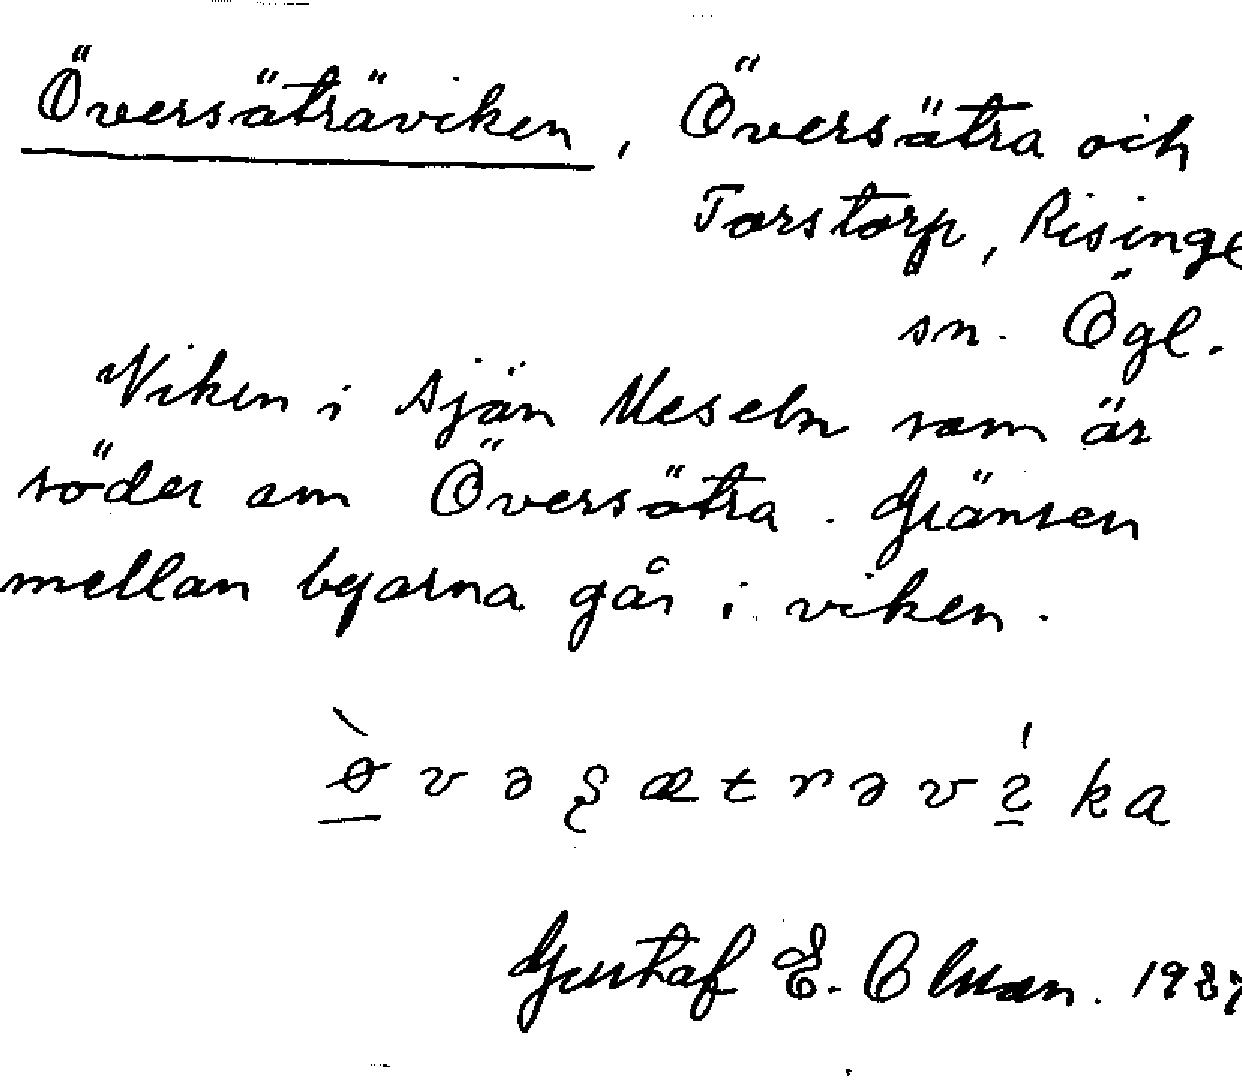 Översäträviken, Översätra och
Torstorp, Risinge
sn. Ögl.
Viken i sjön som är
söder om Översätra. Gränsen
mellan byarna går i viken.
Gustaf E.